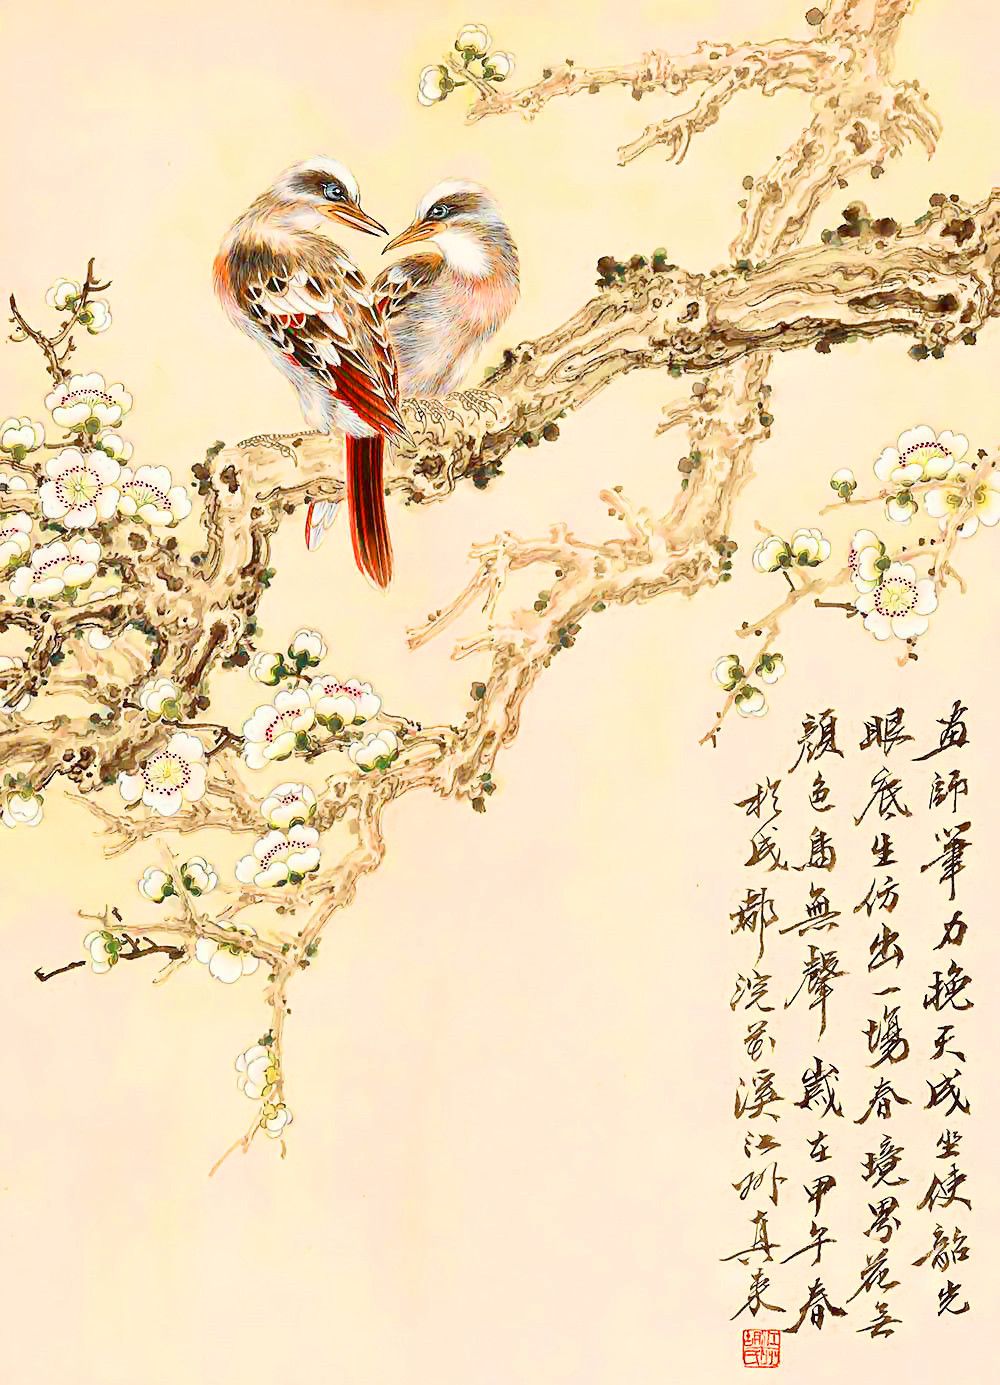 畫師筆力挽天成坐使韶光
眼底生仿出一場春境界花無
顏色鳥無聲 歲在甲午春
於成都浣花溪江州真來
江州胡氏